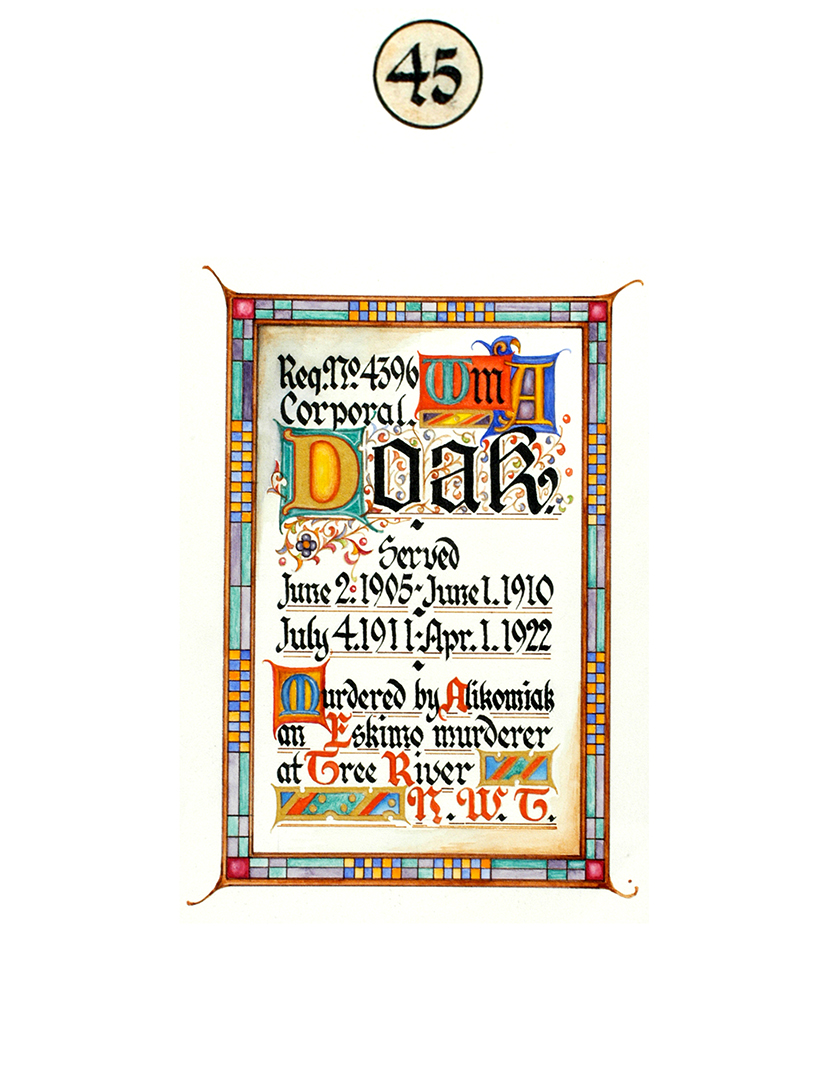 45
Reg. No. 4396 Wm A
Corporal.
Doak.
Served
June 2. 1905 - June 1. 1910
July 4. 1911 - Apr. 1. 1922
Murdered by Alikomiak
an Eskimo murderer
at Tree River
N. W. T.